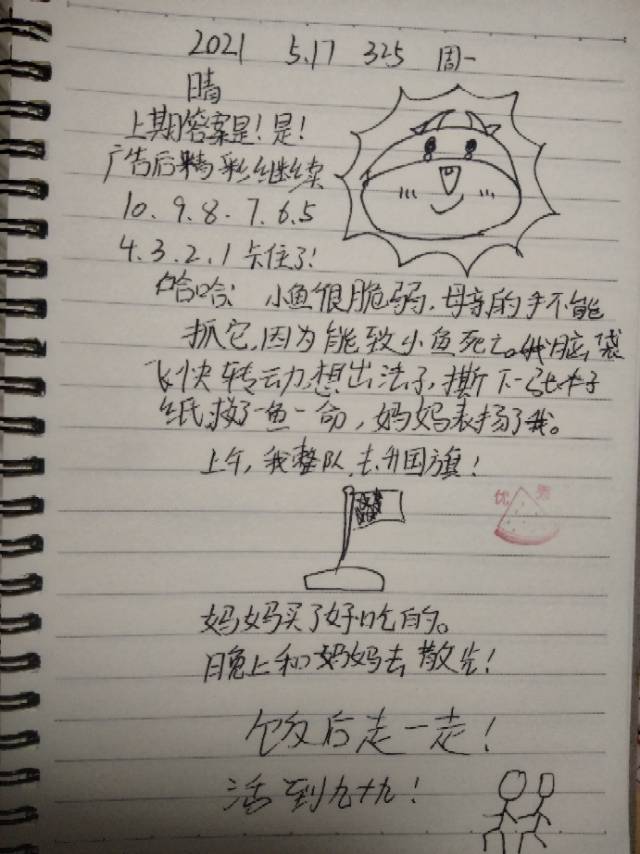 2021 5.17 325 周一
晴
上期答案是!是!
广告后精彩继续
10、9、8、7、6、5
4、3、2、1 卡住了!
哈哈 小鱼很脆弱,母亲的手不能
抓它,因为能致小鱼死亡。我脑袋
飞快转动,想出法子,撕下一张本子
纸,救了一鱼一命,妈妈表扬了我。
上午,我整队去升国旗!
优秀
妈妈买了好吃的。
晚上和妈妈去散步!
饭后走一走!
活到九十九!